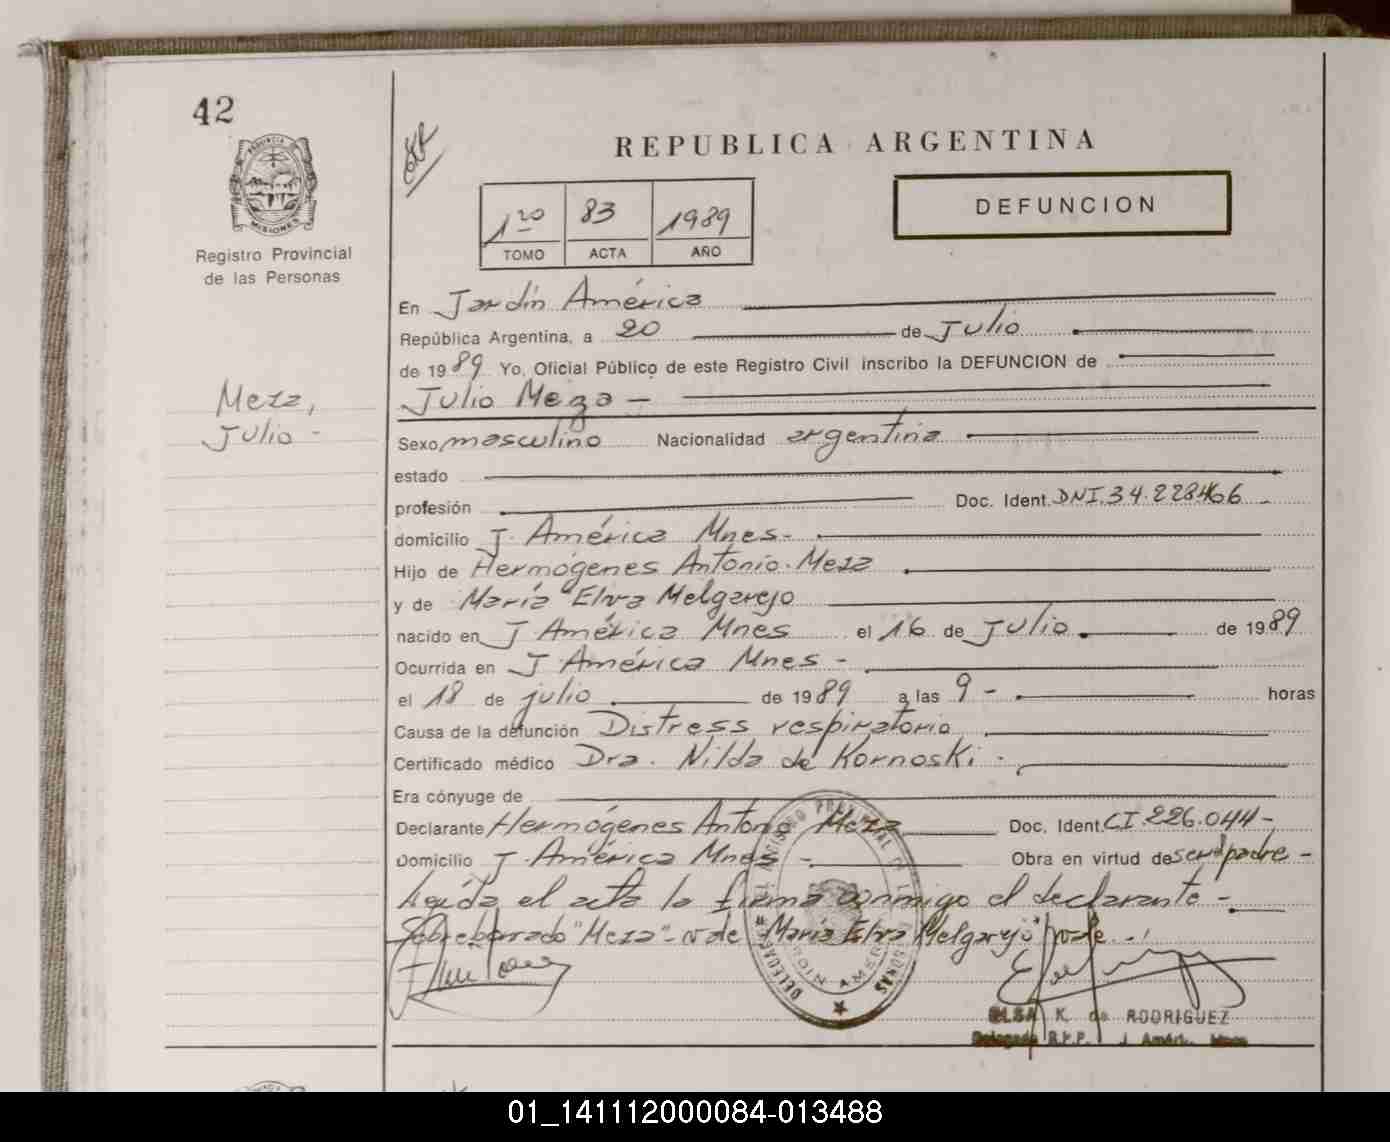 42
PROVINCIA DE
MISIONES
Registro Provincial
de las Personas
Meza,
Julio -
REPUBLICA ARGENTINA
1ro 83 1989
TOMO ACTA AÑO
DEFUNCION
En Jardín América
República Argentina, a 20 de Julio
de 1989 Yo, Oficial Público de este Registro Civil inscribo la DEFUNCION de
Julio Meza -
Sexo masculino Nacionalidad argentina
estado
profesión Doc. Ident. DNI.34.228.466
domicilio J. América Mnes -
Hijo de Hermógenes Antonio Meza
y de María Elva Melgarejo
nacido en J América Mnes el 16 de Julio de 1989
Ocurrida en J América Mnes -
el 18 de julio de 1989 a las 9 - horas
Causa de la defunción Distress respiratorio
Certificado médico Dra. Nilda de Kornoski -
Era cónyuge de
Declarante Hermógenes Antonio Meza Doc. Ident. CI.226.044 -
Domicilio J. América Mnes - Obra en virtud de ser padre -
Leída el acta la firma conmigo el declarante -
Sobreborrado "Meza" - vale "María Elva Melgarejo" vale -
ELSA K. de RODRIGUEZ
Delegada R.P.P. J. Amér. Mnes
01_141112000084-013488